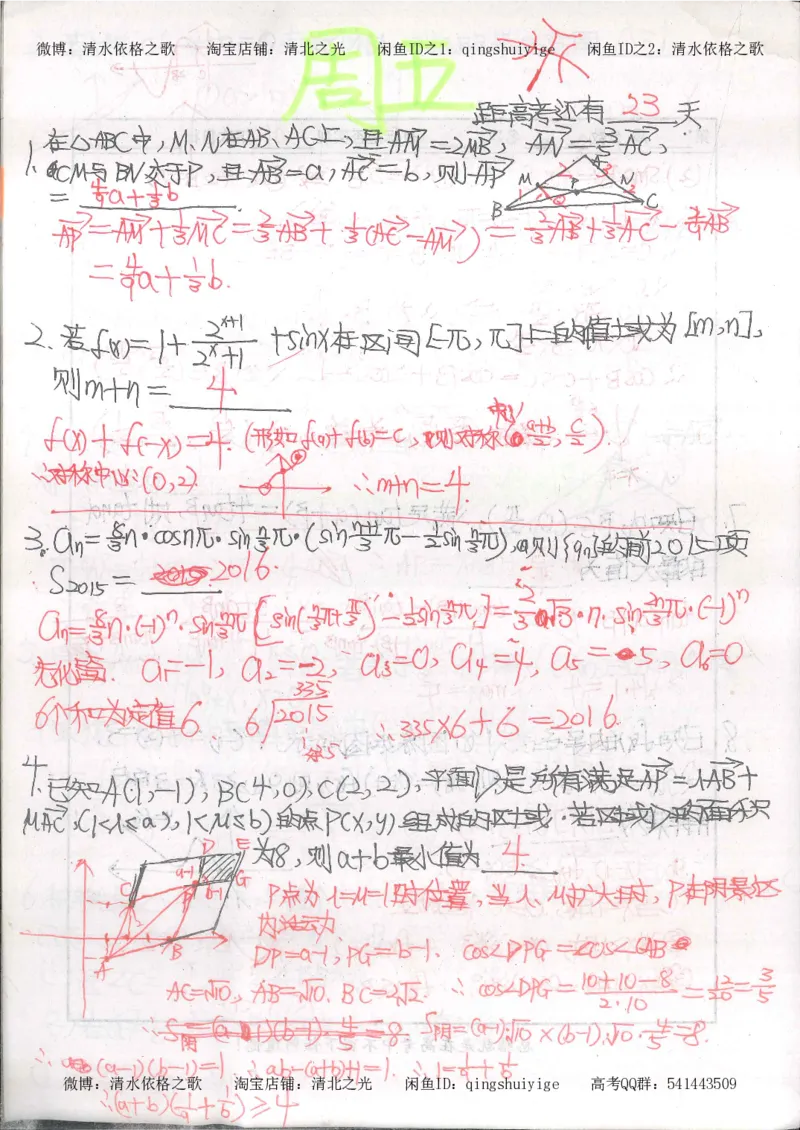 微博：清水依格之歌 淘宝店铺：清北之光 闲鱼ID之1：qingshuiyige 闲鱼ID之2：清水依格之歌
周五
距高考还有 23 天
1. 在△ABC中，M、N在AB、AC上，且AM=2MB，AN=3/5AC，
CM与BN交于P，且AB=a，AC=b，则AP
= 4/9a+1/3b
AP=AM+1/3MC=2/3AB+1/3(AC-AM)=2/3AB+1/3AC-2/9AB
=4/9a+1/3b.
2. 若f(x)=1+2^(x+1)/(2^x+1)+sinx在区间[-π,π]上的值域为[m,n],
则m+n= 4
f(x)+f(-x)=4. (形如f(a)+f(b)=c, 则对称中心(a+b/2, c/2).
∴对称中心:(0,2). ∴m+n=4.
3. an=8/3n·cosnπ·sin n/3π·(sin n+1/3π-1/2sin n/3π), 则{an}的前2015项
S2015= 2016.
an=8/3n·(-1)^n·sin n/3π[sin(n/3π+π/3)-1/2sin n/3π]=2/3√3·n·sin 2n/3π·(-1)^n
a1=-1, a2=-2, a3=0, a4=4, a5=5, a6=0
6个和为定值6 6 2015 335 ∴335×6+6=2016.
4. 已知A(1,-1), B(4,0), C(2,2), 平面D是所有满足AP=λAB+
μAC, (1<λ≤a), 1<μ≤b)的点P(x,y)组成的区域. 若区域D的面积
为8, 则a+b最小值为 4
P点为λ=μ=1时位置, 当λ、μ扩大时, P在阴影区
内运动
DP=a-1, PG=b-1. cos∠DPG=cos∠CAB
AC=√10, AB=√10. BC=2√2. ∴cos∠DPG=10+10-8/2·10=12/20=3/5
∴S阴=(a-1)(b-1)·4/5=8. S阴=(a-1)·√10×(b-1)·√10·4/5=8.
∴(a-1)(b-1)=1. ∴ab-(a+b)+1=1. ∴1=1/a+1/b
微博：清水依格之歌 淘宝店铺：清北之光 闲鱼ID：qingshuiyige 高考QQ群：541443509
∴(a+b)(1/a+1/b)≥4